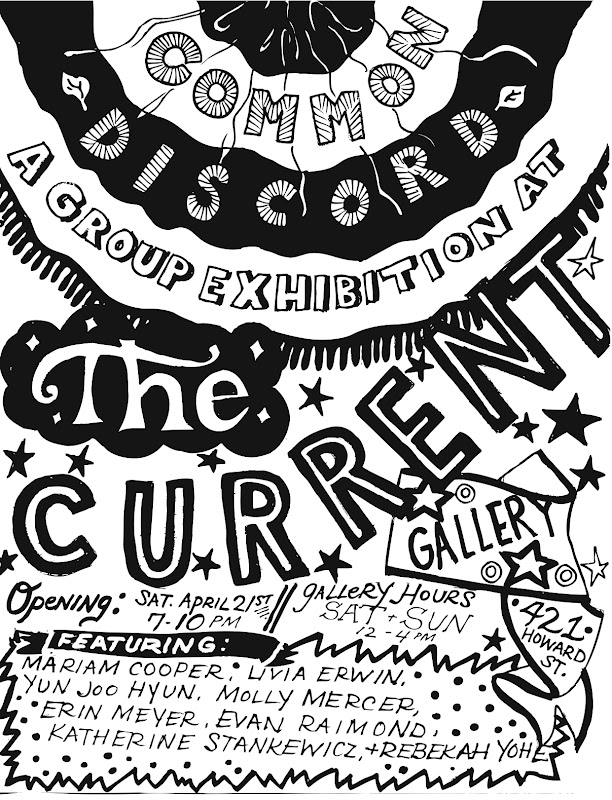 COMMON
DISCORD
A GROUP EXHIBITION AT
The
CURRENT
GALLERY
421.
HOWARD
ST.
Opening: SAT. APRIL 21ST
7-10 PM
GALLERY HOURS
SAT + SUN
12 - 4 PM
FEATURING:
MARIAM COOPER, LIVIA ERWIN,
YUN JOO HYUN, MOLLY MERCER,
ERIN MEYER, EVAN RAIMOND,
KATHERINE STANKEWICZ, + REBEKAH YOHE